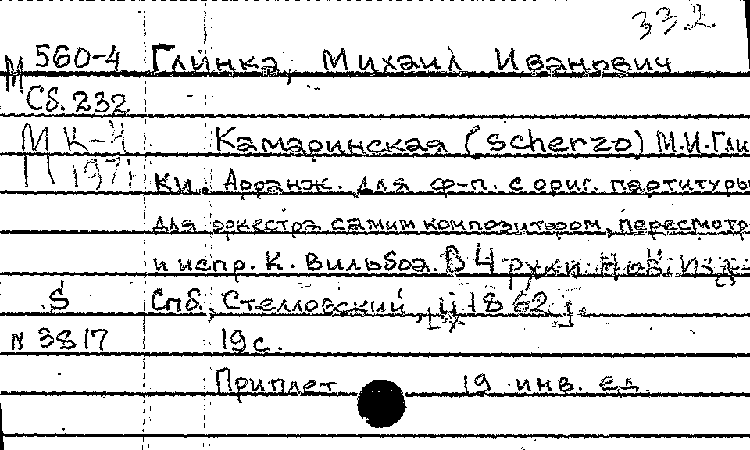 332
М 560-4 Глинка, Михаил Иванович
Сб. 232
М К-4 Камаринская (scherzo) М.И. Гли
1971 ки. Арранж. для ф-п. с ориг. партитуры
для оркестра самим композитором, пересмотр
и испр. К. Вильбоа. В 4 руки. Нов. изд.
S Спб, Стелловский, ц 1862 г.
N 3817 19 с.
Приплет 19 инв. ед.